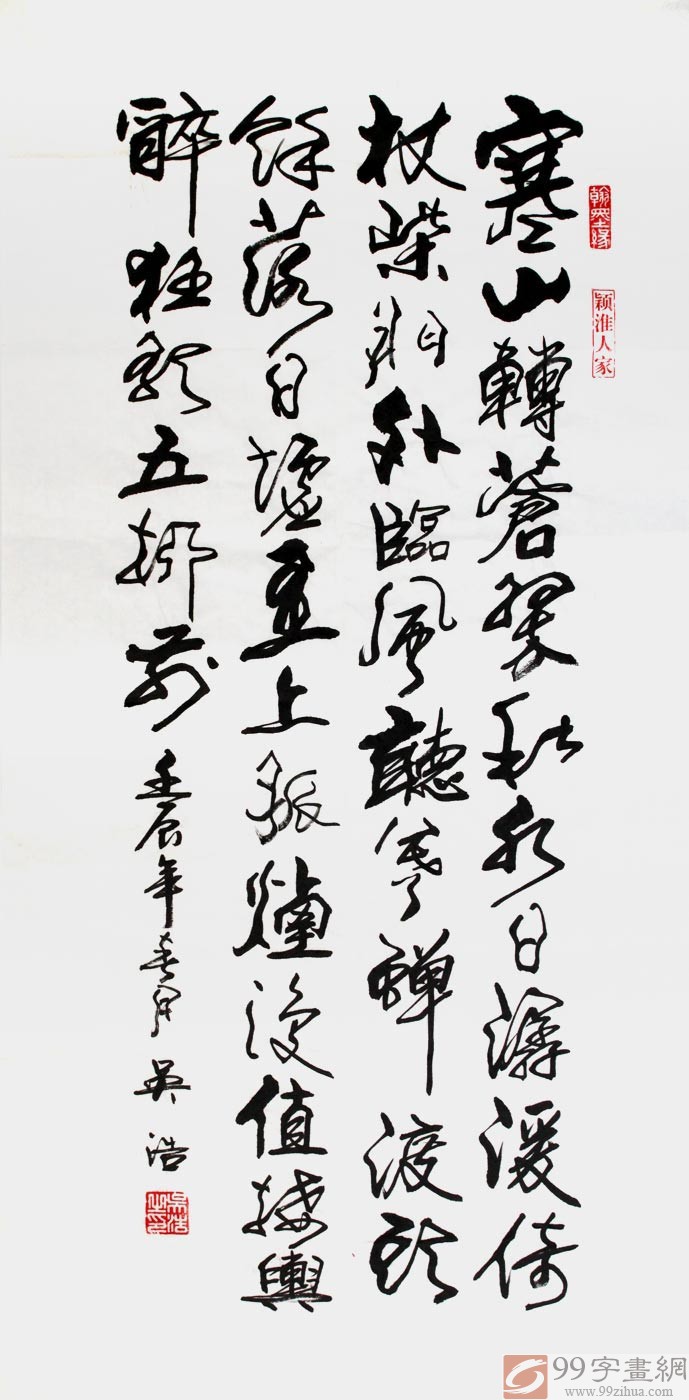 翰墨緣
颖淮人家
寒山轉蒼翠秋水日潺湲倚
杖柴門外臨風聽暮蟬渡頭
餘落日墟里上孤煙復值接輿
醉狂歌五柳前 壬辰年春月 吳浩
吳浩之印
99字畫網
www.99zihua.com